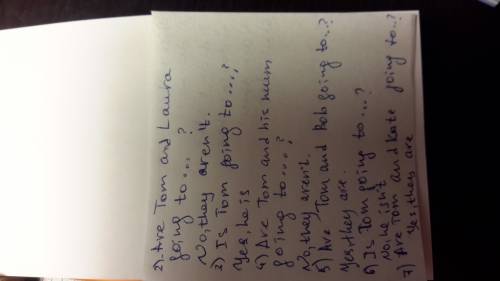 2). Are Tom and Laura
going to....?
No, they aren't.
3) Is Tom going to....?
Yes, he is
4) Are Tom and his mum
going to....?
No, they aren't.
5) Are Tom and Rob going to..?
Yes, they are.
6) Is Tom going to....?
No, he isn't
7) Are Tom and Kate going to..?
Yes, they are